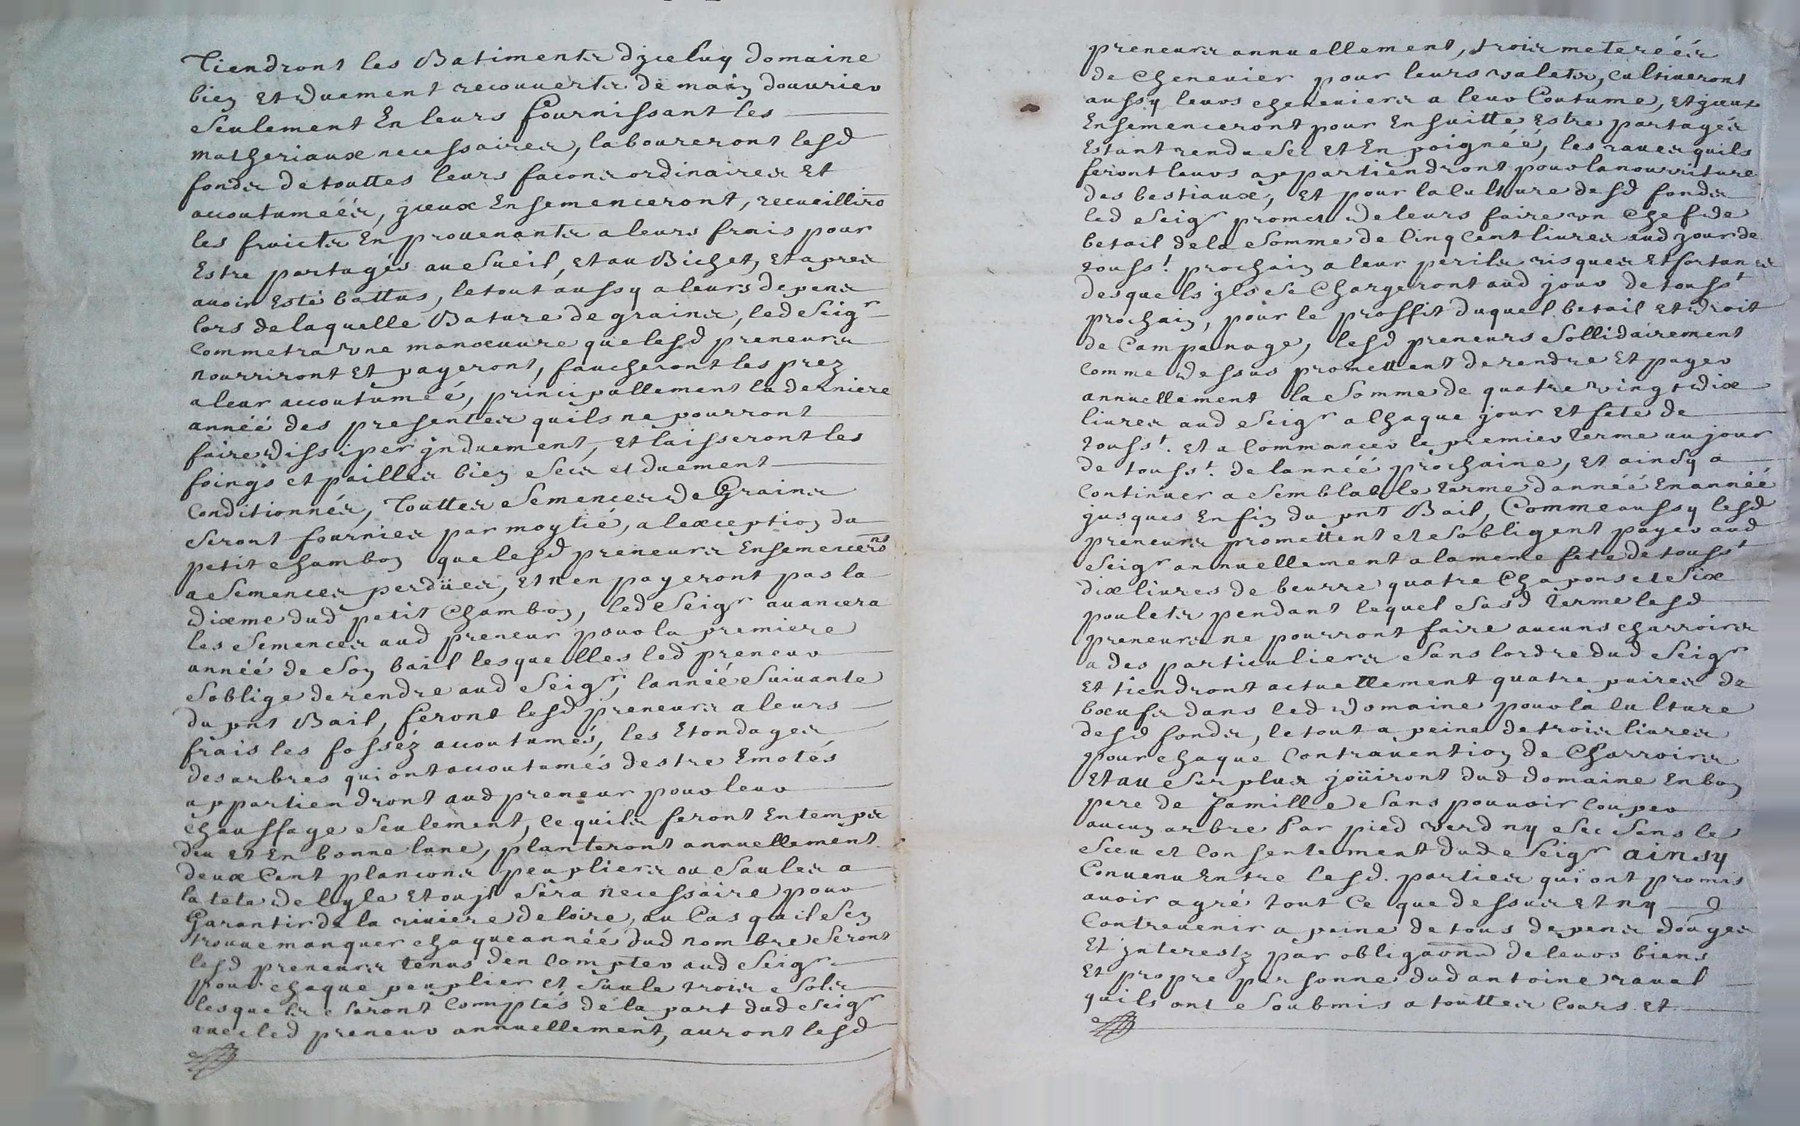 Tiendront les Batiments djceluy domaine
bien et duement recouverts de main douvrier
seulement En leurs fournissant les
matheriaux necessaires, laboureront lesd
fonds de touttes leurs façons ordinaires Et
accoutumeés, jceux Ensemenceront, recueilliro
les fruicts En provenants a leurs frais pour
Estre partagés au sueil, et au Bichet, Et apres
avoir Esté battus, le tout aussy a leurs depens
lors de laquelle Bature de grains, led Seigr
Commetra une manœuvre que lesd preneurs
nourriront Et payeront, faucheront les prez
a leur accoutumeé, principallement la derniere
anneé des presentes quils ne pourront
faire dissiper jnduement, Et laisseront les
foings et pailles bien secs et duement
Conditionnés, Touttes semences de Grains
seront fournies par moytié, a lexception du
petit chambon que lesd preneurs Ensemenceront
a semences perdües, Et n'en payeront pas la
dixme dud petit Chambon, led Seigr avancera
les semences aud preneur pour la premiere
anneé de son bail lesquelles led preneur
soblige de rendre aud Seigr, lanneé suivante
du pnt Bail, feront lesd preneurs a leurs
frais les fosséz accoutumés, les Etondages
des arbres qui ont accoutumés destre Emotés
appartiendront aud preneur pour leur
chauffage seulement, ce quils feront En temps
deu et En bonne lune, planteront annuellement
deux Cent plançons peupliers ou saules a
la tete de lyle Et ou jl sera necessaire pour
Garantir de la riviere de loire, au Cas quil sen
trouve manquer chaque anneé dud nombre seront
lesd preneurs tenus den compter aud Seigr
pour chaque peuplier et saule trois sols
lesquels seront Comptés de la part dud Seigr
avec led preneur annuellement, auront lesd
preneurs annuellement, trois metereés
de Chenevier pour leurs valets, Cultiveront
aussy leurs cheneviers a leur Coutume, Et jceux
Ensemenceront pour Ensuitte Estre partagés
Estant rendu sec Et En poigneé, les raves quils
feront leurs appartiendront pour la nourriture
des bestiaux, Et pour la Culture desd fonds
led Seigr promet de leurs faire un Chef de
betail de la somme de Cinq Cent livres aud jour de
touss.t prochain a leur perils risques Et fortunes
desquels jls se Chargeront aud jour de touss.t
prochain, pour le proffit duquel betail et droit
de Campenage, lesd preneurs sollidairement
Comme dessus promettent de rendre Et payer
annuellement la somme de quatre vingt dix
livres aud Seigr a Chaque jour Et fete de
touss.t et a Commancer le premier terme au jour
de touss.t de lanneé prochaine, Et ainsy a
Continuer a semblable terme danneé En anneé
jusques En fin du pnt Bail, Comme aussy lesd
preneurs promettent et sobligent payer aud
Seigr annuellement a la meme fete de touss.t
dix livres de beurre quatre Chapons et six
poulets pendant lequel susd terme lesd
preneurs ne pourront faire aucuns charroirs
a des particuliers sans lordre dud Seigr
Et tiendront actuellement quatre paires de
bœufs dans led Domaine pour la Culture
desd fonds, le tout a peine de trois livres
pour chaque Contravention de Charroirs
Et au surplus joüiront dud domaine En bon
pere de famille sans pouvoir Couper
aucun arbre Par pied verd ny sec sans le
sceu et Consentement dud Seigr ainsy
Convenu Entre lesd. parties qui ont promis
avoir agré tout Ce que dessus Et ny
Contrevenir a peine de tous depens domges
Et jnterestz par obligaõn de leurs biens
Et propre personne dud antoine raval
quils ont soubmis a touttes Cours Et